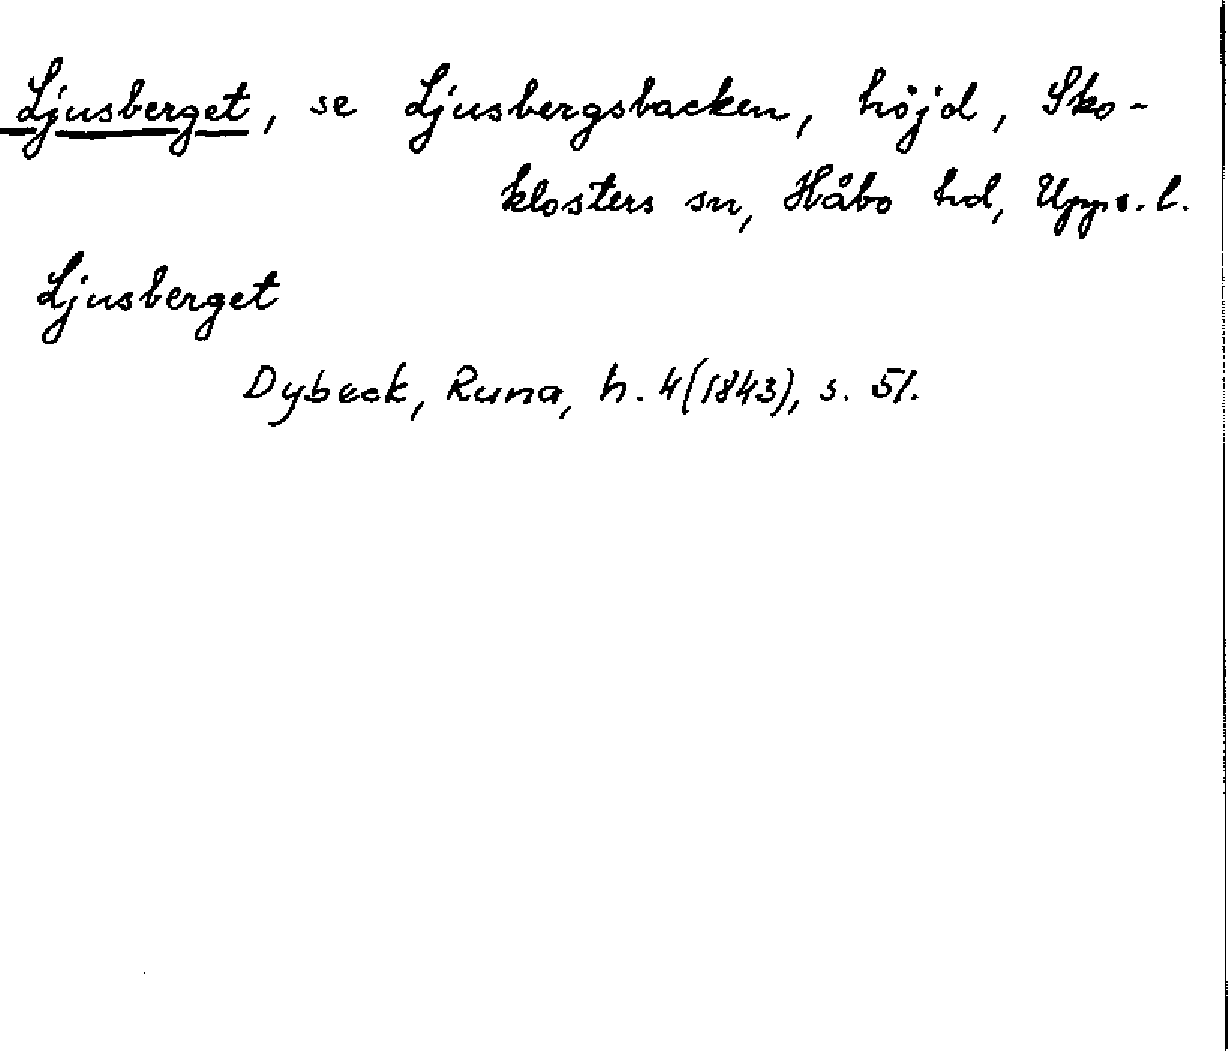 Ljusberget, se Ljusbergsbacken, höjd, Sko-
klosters sn, Håbo hd, Upps. l.
Ljusberget
Dybeck, Runa, h. 4 (1843), s. 51.